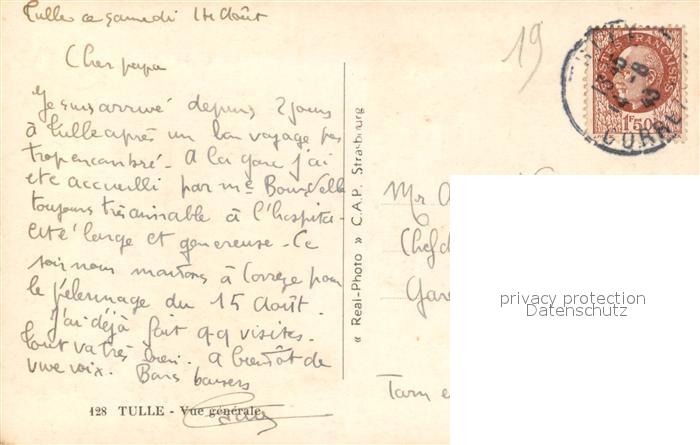 Tulle ce samedi 14 Août
Cher papa
Je suis arrivé depuis 2 jours
à Tulle après un bon voyage pas
trop encombré - A la gare j'ai
été accueilli par me
toujours très aimable à l'hospita-
lité large et genereuse - Ce
soir nous montons à Corrèze pour
le pélerinage du 15 Août.
J'ai déjà fait qq visites.
Tout va très bien. A bientôt de
vive voix. Bons baisers
128 TULLE - Vue générale
« Real-Photo » C.A.P. Strasbourg
19
POSTES FRANÇAISES
1F50
TULLE
CORREZE
Mr
Chef d
Gare
Tarn e
privacy protection
Datenschutz